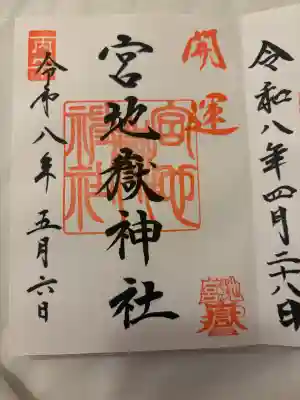 令和八年四月二十八日
開運
宮地嶽神社
宮地嶽神社
宮地嶽
令和八年 五月六日